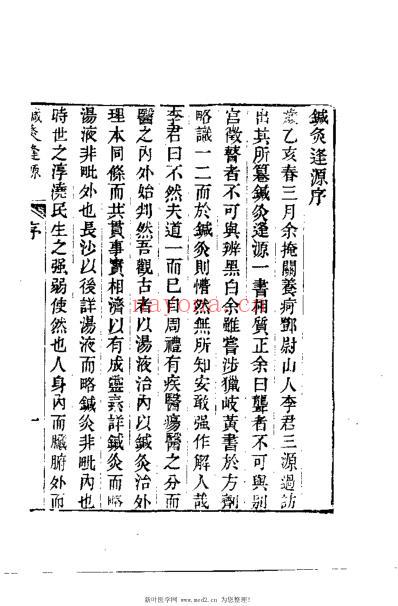 鍼灸逢源序
歲乙亥春三月余掩關養疴鄧尉山人李君三源過訪
出其所纂鍼灸逢源一書相質正余曰聾者不可與別
宮徵瞽者不可與辨黑白余雖嘗涉獵岐黃書於方劑
略識一二而於鍼灸則懵然無所知安敢强作解人哉
李君曰不然夫道一而已自周禮有疾醫瘍醫之分而
醫之內外始判然吾觀古者以湯液治內以鍼灸治外
理本同條而共貫事實相濟以有成靈素詳鍼灸而略
湯液非毗外也長沙以後詳湯液而略鍼灸非毗內也
時世之淳澆民生之强弱使然也人身內而臟腑外而
鍼灸逢源
序
一
nayona.cn
新叶医学网 www.med2.cn 为您整理!